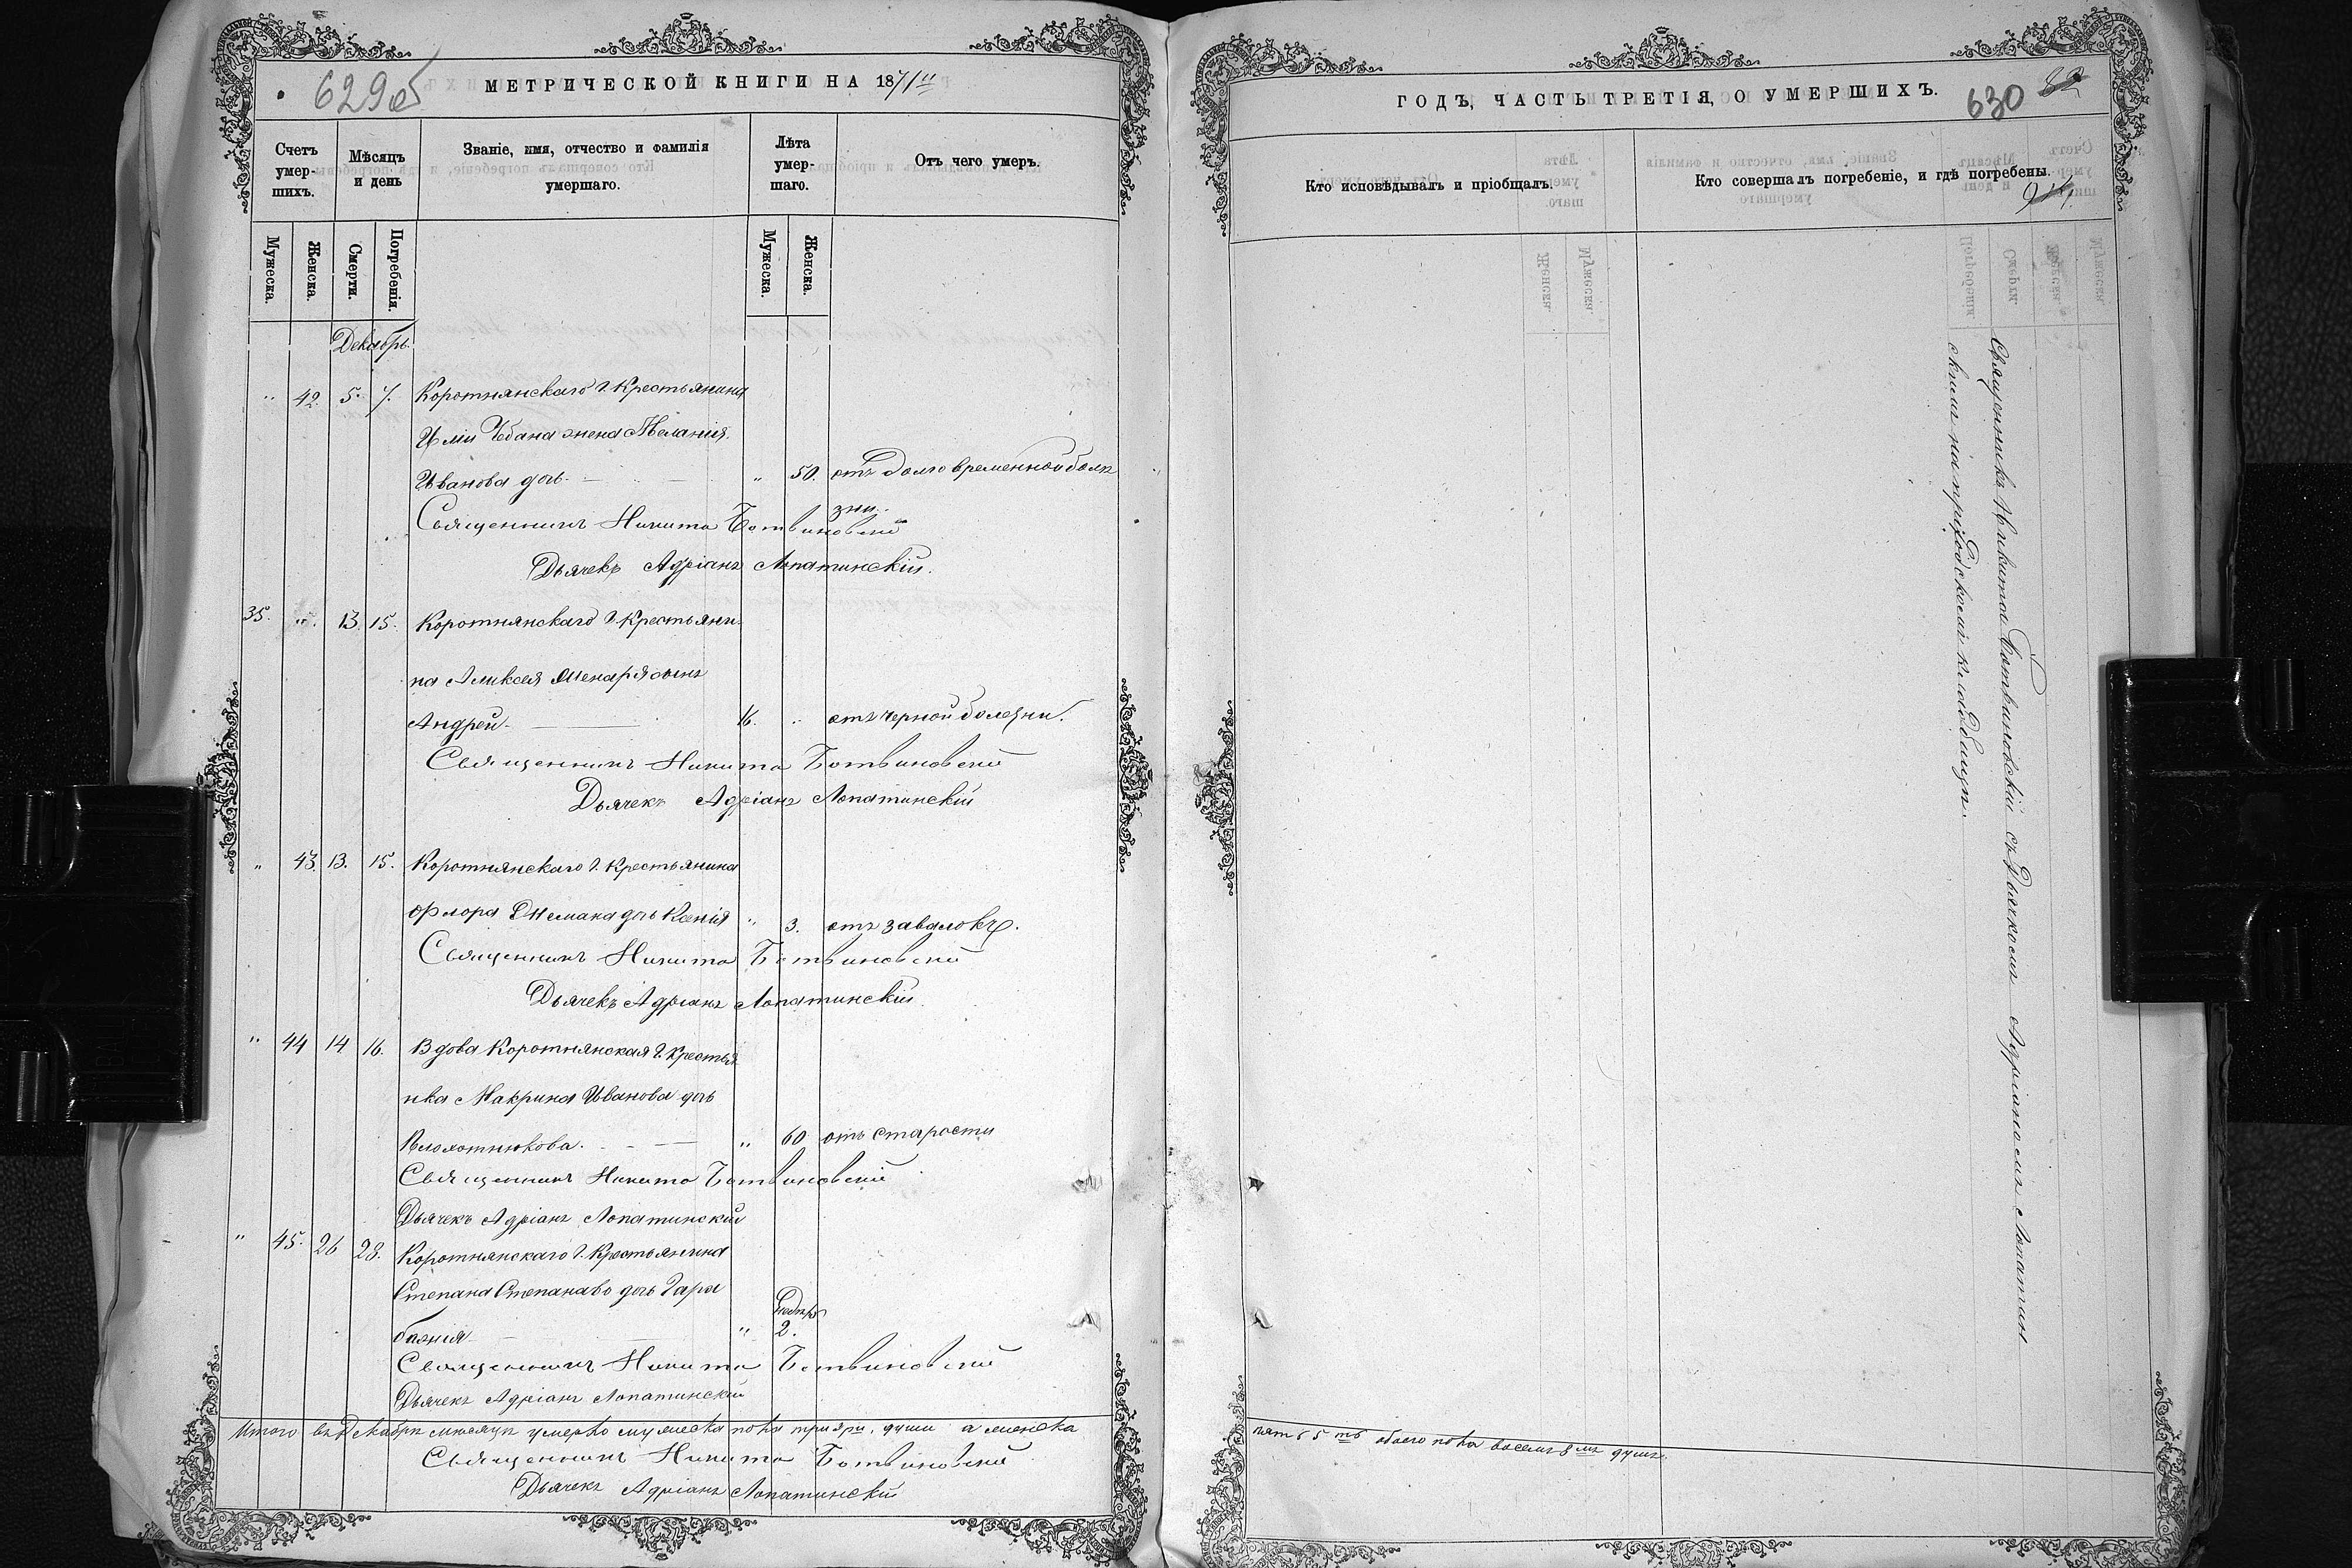 629об
МЕТРИЧЕСКОЙ КНИГИ НА 1871й
Счетъ умершихъ.
Мѣсяцъ и день
Званіе, имя, отчество и фамилія умершаго.
Лѣта умершаго.
Отъ чего умеръ.
Мужеска.
Женска.
Смерти.
Погребенія.
Мужеска.
Женска.
Декабрь.
" 42. 5. 7. Коротнянскаго Ц. Крестьянина
Чебана жена Меланія
Иванова дочь " 50. отъ долговременной болѣ
зни.
Священникъ Никита Ботвиновскій
Дьячекъ Адріанъ Лопатинскій.
35. " 13. 15. Коротнянскаго Ц. Крестьяни
на Аликсея сынъ
Андрей. 16. " отъ черной болезни.
Священникъ Никита Ботвиновскій
Дьячекъ Адріанъ Лопатинскій
" 43. 13. 15. Коротнянскаго Ц. Крестьянина
Флора дочь Ксенія " 3. отъ заваловъ.
Священникъ Никита Ботвиновскій
Дьячекъ Адріанъ Лопатинскій.
" 44 14 16. Вдова Коротнянская Ц. Крестья
нка Макрина Иванова дочь
Плохотнюкова. " 60 отъ старости
Священникъ Никита Ботвиновскій
Дьячекъ Адріанъ Лопатинскій
" 45. 26 28. Коротнянскаго Ц. Крестьянина
Степана Степанаво дочь Гара
банія " 2.
Священникъ Никита Ботвиновскій
Дьячекъ Адріанъ Лопатинскій
Итого въ Декабрѣ мѣсяцѣ умерво мужеска пола три души а женска
Священникъ Никита Ботвиновскій
Дьячекъ Адріанъ Лопатинскій
ГОДЪ, ЧАСТЬ ТРЕТІЯ, О УМЕРШИХЪ.
630
Кто исповѣдывалъ и пріобщалъ.
Кто совершалъ погребеніе, и гдѣ погребены.
Священникъ Никита Ботвиновскій съ Дьячкомъ Адріаномъ Лопатин
скимъ на приходскомъ кладбищѣ.
пять 5ть обоего пола восемь 8мь душъ.